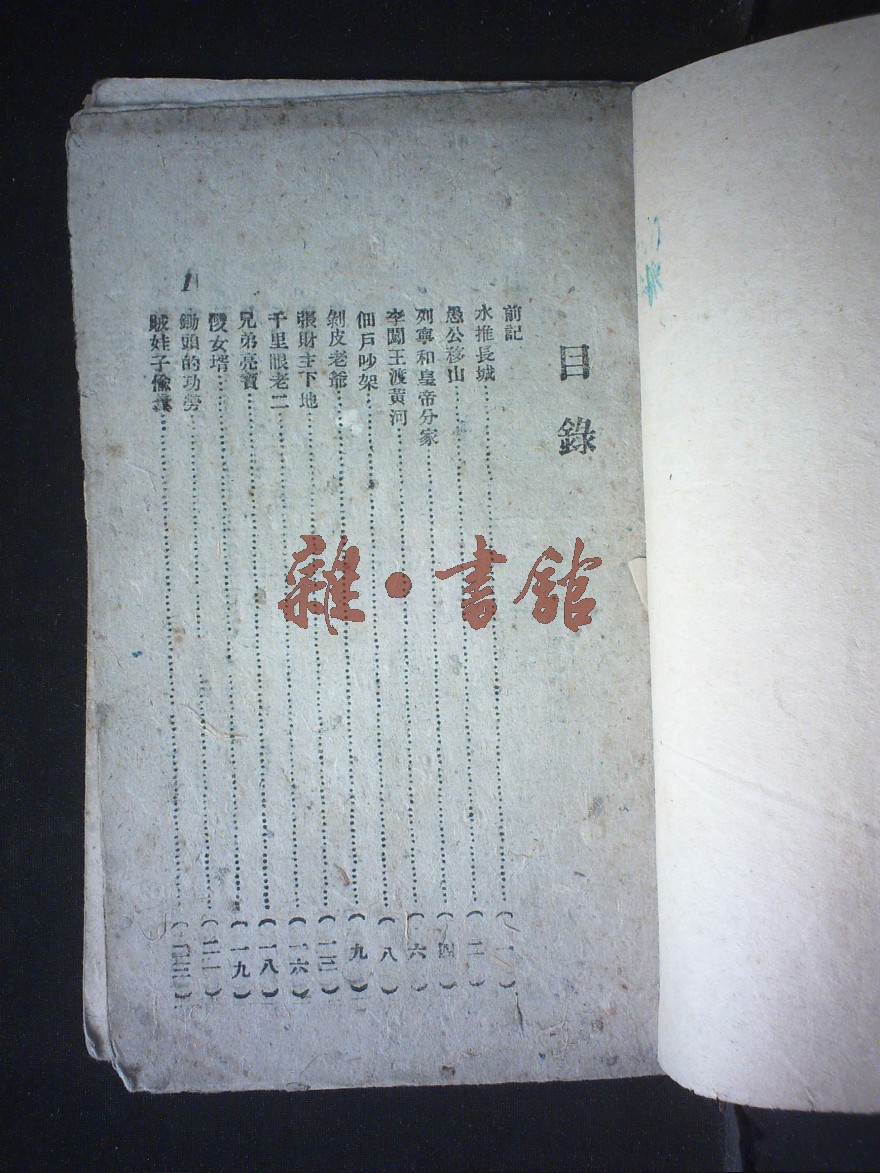 目錄
前記
水推長城……（一）
愚公移山……（二）
列寧和皇帝分家……（四）
李闖王渡黃河……（六）
佃戶吵架……（八）
剝皮老爺……（九）
張財主下地……（一三）
千里眼老二……（一六）
兄弟亮寶……（一八）
傻女壻……（一九）
鋤頭的功勞……（二一）
賊娃子偷……（二三）
1
雜·書館